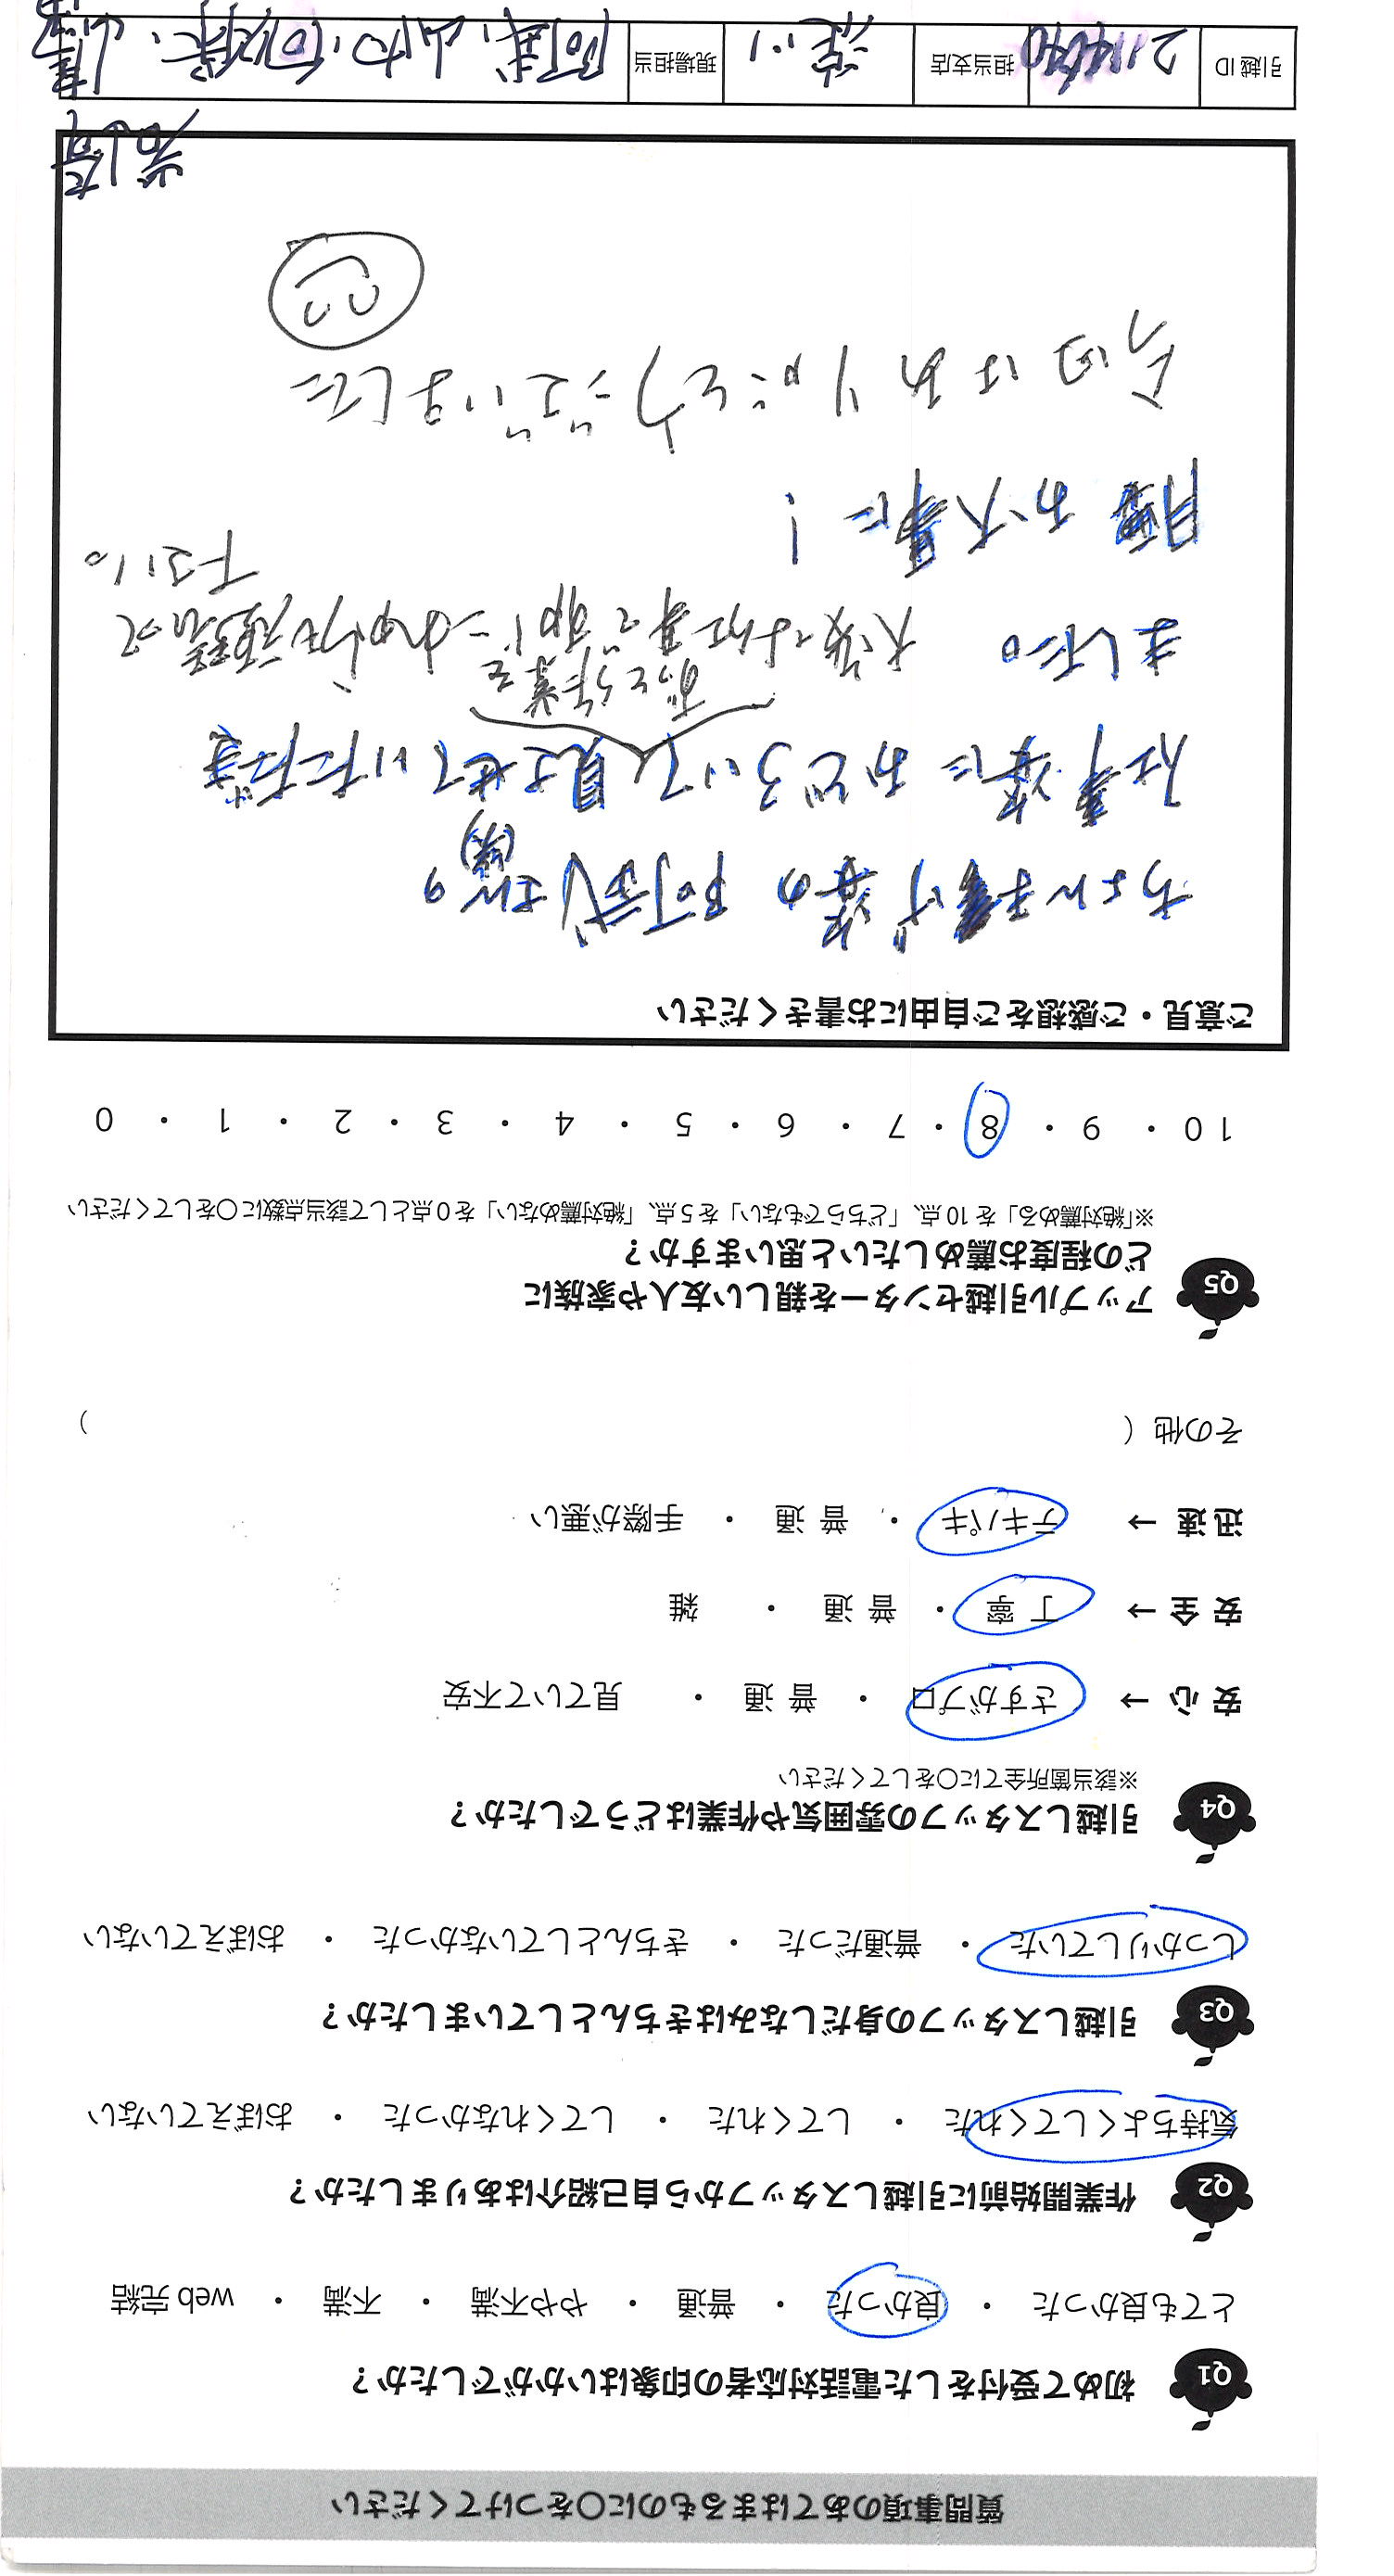 質問事項のあてはまるものに○をつけてください
Q1 初めて受付をした電話対応者の印象はいかがでしたか？
とても良かった ・ 良かった ・ 普通 ・ やや不満 ・ 不満 ・ web 完結
Q2 作業開始前に引越しスタッフから自己紹介はありましたか？
気持ちよくしてくれた ・ してくれた ・ してくれなかった ・ おぼえていない
Q3 引越しスタッフの身だしなみはきちんとしていましたか？
しっかりしていた ・ 普通だった ・ きちんとしていなかった ・ おぼえていない
Q4 引越しスタッフの雰囲気や作業はどうでしたか？
※該当箇所全てに○をしてください
安 心 → さすがプロ ・ 普 通 ・ 見ていて不安
安 全 → 丁 寧 ・ 普 通 ・ 雑
迅 速 → テキパキ ・ 普 通 ・ 手際が悪い
その他（ ）
Q5 アップル引越センターを親しい友人や家族に
どの程度お薦めしたいと思いますか？
※「絶対薦める」を 10 点、「どちらでもない」を 5 点、「絶対薦めない」を 0 点として該当点数に○をしてください
10 ・ 9 ・ 8 ・ 7 ・ 6 ・ 5 ・ 4 ・ 3 ・ 2 ・ 1 ・ 0
ご意見・ご感想をご自由にお書きください
ちょんまげ姿の 阿武さんの
(笑)
仕事姿に おどろいて 見させていただき
ずっと作業を
ました。 大変なお仕事ですが
下さい。
お大事に！
今回はありがとうございました
引越 ID
担当支店 淀川
現場担当 阿武、山内、